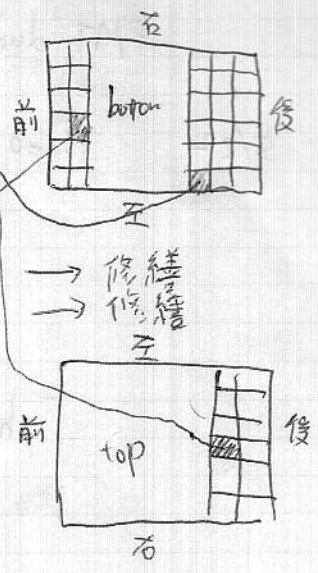 右
前 botom 後
左
→ 修繕
→ 修繕
左
前 top 後
右